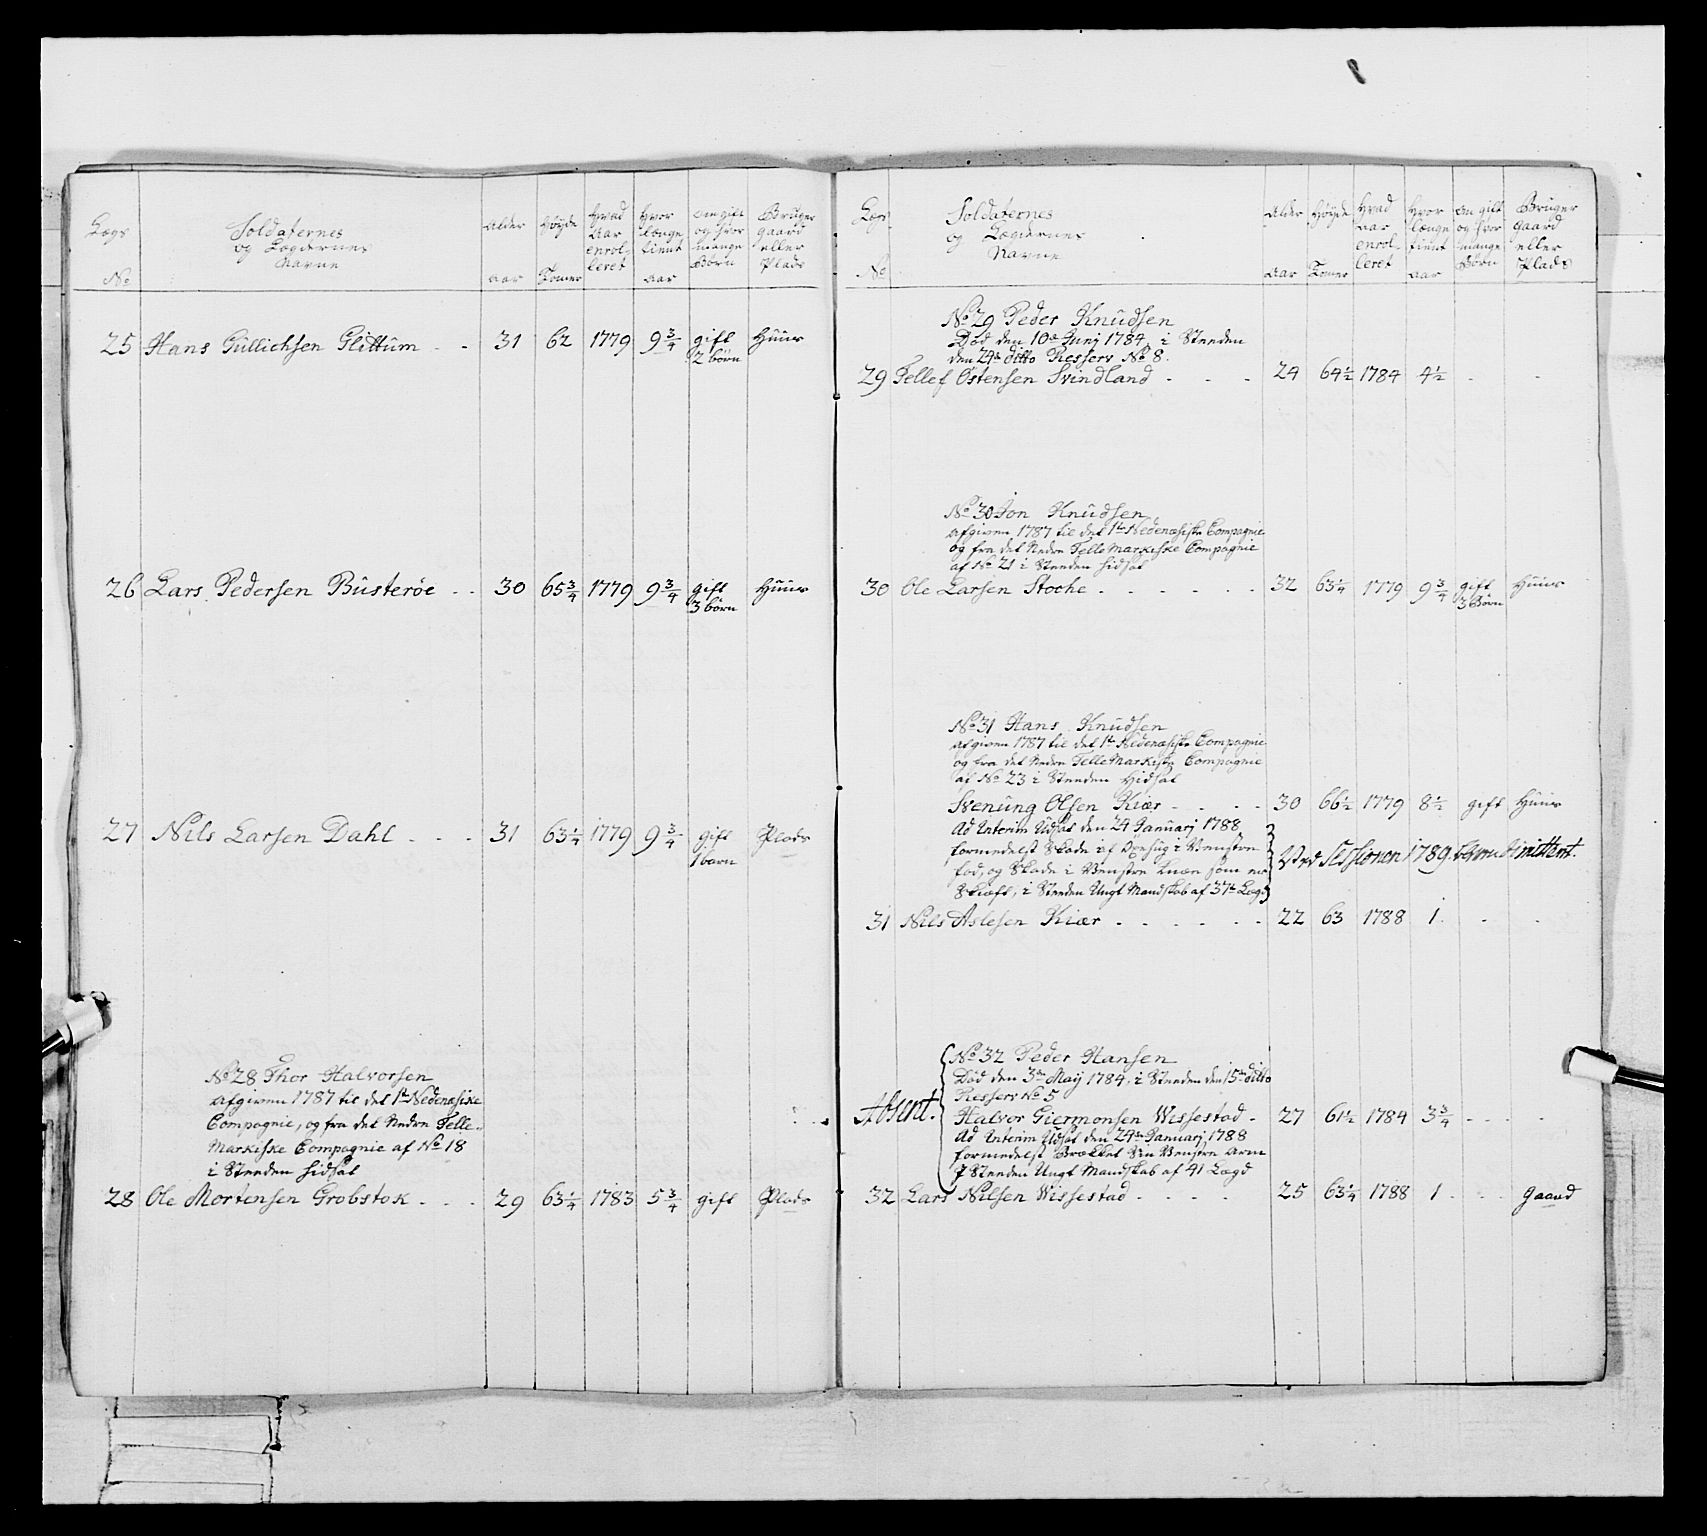 Lægs No
Soldaternes og Lægdernes Navne
Alder Aar
Høyde Tomer
Hvad Aar enrolleret
Hvor længe tient Aar
Om gift og hvor mange Børn
Bruger gaard eller Plads
25 Hans Gullichsen Glittum - - 31 62 1779 9 3/4 gift 2 børn Huus
26 Lars Pedersen Busterøe - - 30 65 3/4 1779 9 3/4 gift 3 børn Huus
27 Nils Larsen Dahl - - - 31 63 1/4 1779 9 3/4 gift 1 barn Plads
No 28 Thor Halvorsen
afgiven 1787 til det 1te Nedenæsiske
Compagnie, og fra det Nedre Telle-
Markiske Compagnie af No 18
i Steeden hidsat
28 Ole Mortensen Grobstok - - - 29 63 1/4 1783 5 3/4 gift Plads
Lægs No
Soldaternes og Lægdernes Navne
Alder Aar
Høyde Tomer
Hvad Aar enrolleret
Hvor længe tient Aar
Om gift og hvor mange Børn
Bruger gaard eller Plads
No 29 Peder Knudsen
Død den 10de Junj 1784, i Steeden
den 24de ditto Reserv No 8.
29 Tellef Østensen Svindland - - - 24 64 1/2 1784 4 1/2 - -
No 30 Jon Knudsen
afgiven 1787 til det 1te Nedenæsiske Compagnie
og fra det Nedre Tellemarkiske Compagnie
af No 21 i Steeden hidsat
30 Ole Larsen Stoche - - - - - - 32 63 1/4 1779 9 3/4 gift 3 Børn Huus
No 31 Hans Knudsen
afgiven 1787 til det 1te Nedenæsiske Compagnie
og fra det Nedre TelleMarkiske Compagnie
af No 23 i Steeden Hidsat
Svenung Olsen Kiær - - - - 30 66 1/2 1779 8 1/2 gift Huus
Ad Interim Udsat den 24 Januarj 1788
formedelst Skade af Øxehug i Venstre
fod, og Skade i Venstre knæe som er
Skiæft, i Steeden Ungt Mandskab af 37te Lægd
Ved Sessionen 1789
31 Nils Aslesen Kiær - - - - - - 22 63 1788 1. - -
Absent.
No 32 Peder Hansen
Død den 3de Maij 1784, i Steeden den 15de ditto
Reserv No 5
Halvor Giermonsen Wissestad - 27 61 1/2 1784 3 3/4 - - -
Ad Interim Udsat den 24de Januarj 1788
formedelst Brækket Sin Venstre Arm
I Steeden Ungt Mandskab af 41 Lægd
32 Lars Nilsen Wissestad - - - - 25 63 1/4 1788 1 - - - gaard